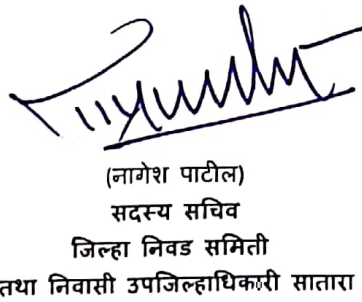 (नागेश पाटील)
सदस्य सचिव
जिल्हा निवड समिती
तथा निवासी उपजिल्हाधिकारी सातारा